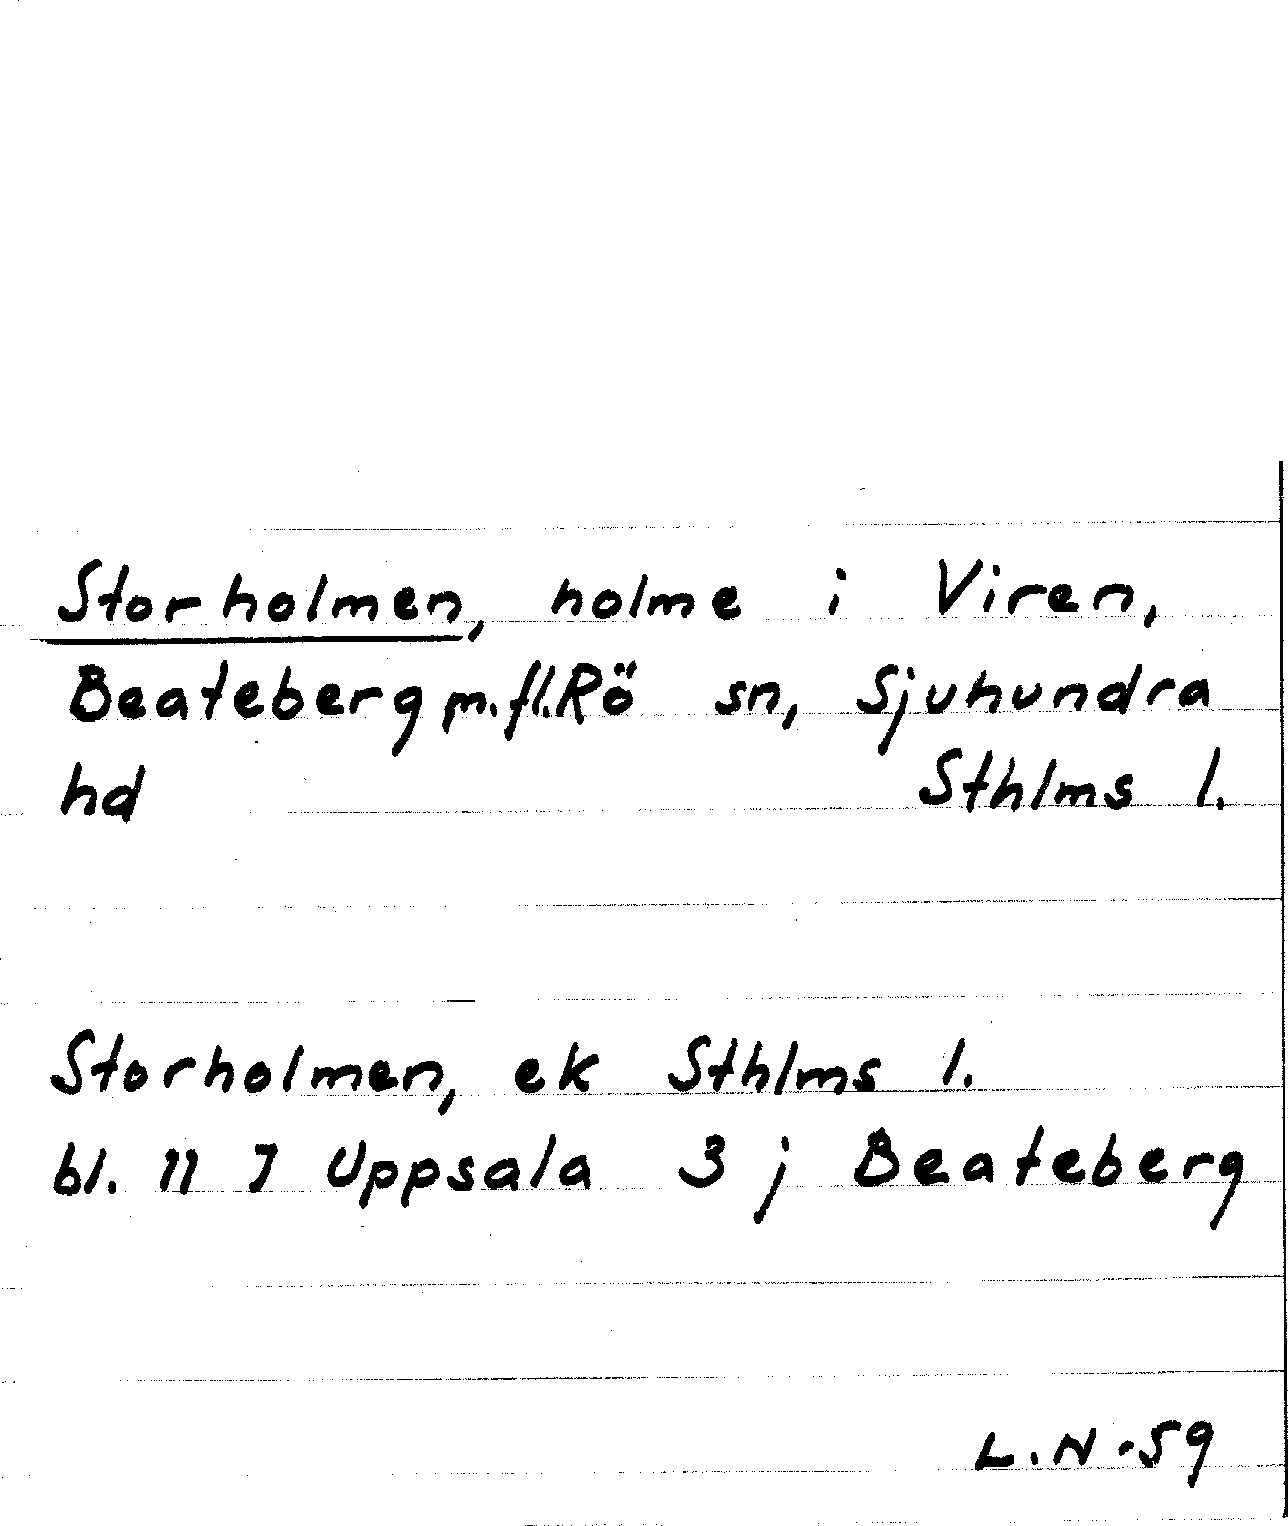 Storholmen, holme i Viren,
Beateberg m.fl. Rö sn, Sjuhundra
hd Sthlms l.
Storholmen, ek Sthlms l.
bl. 11 I Uppsala 3 j Beateberg
L.N -59